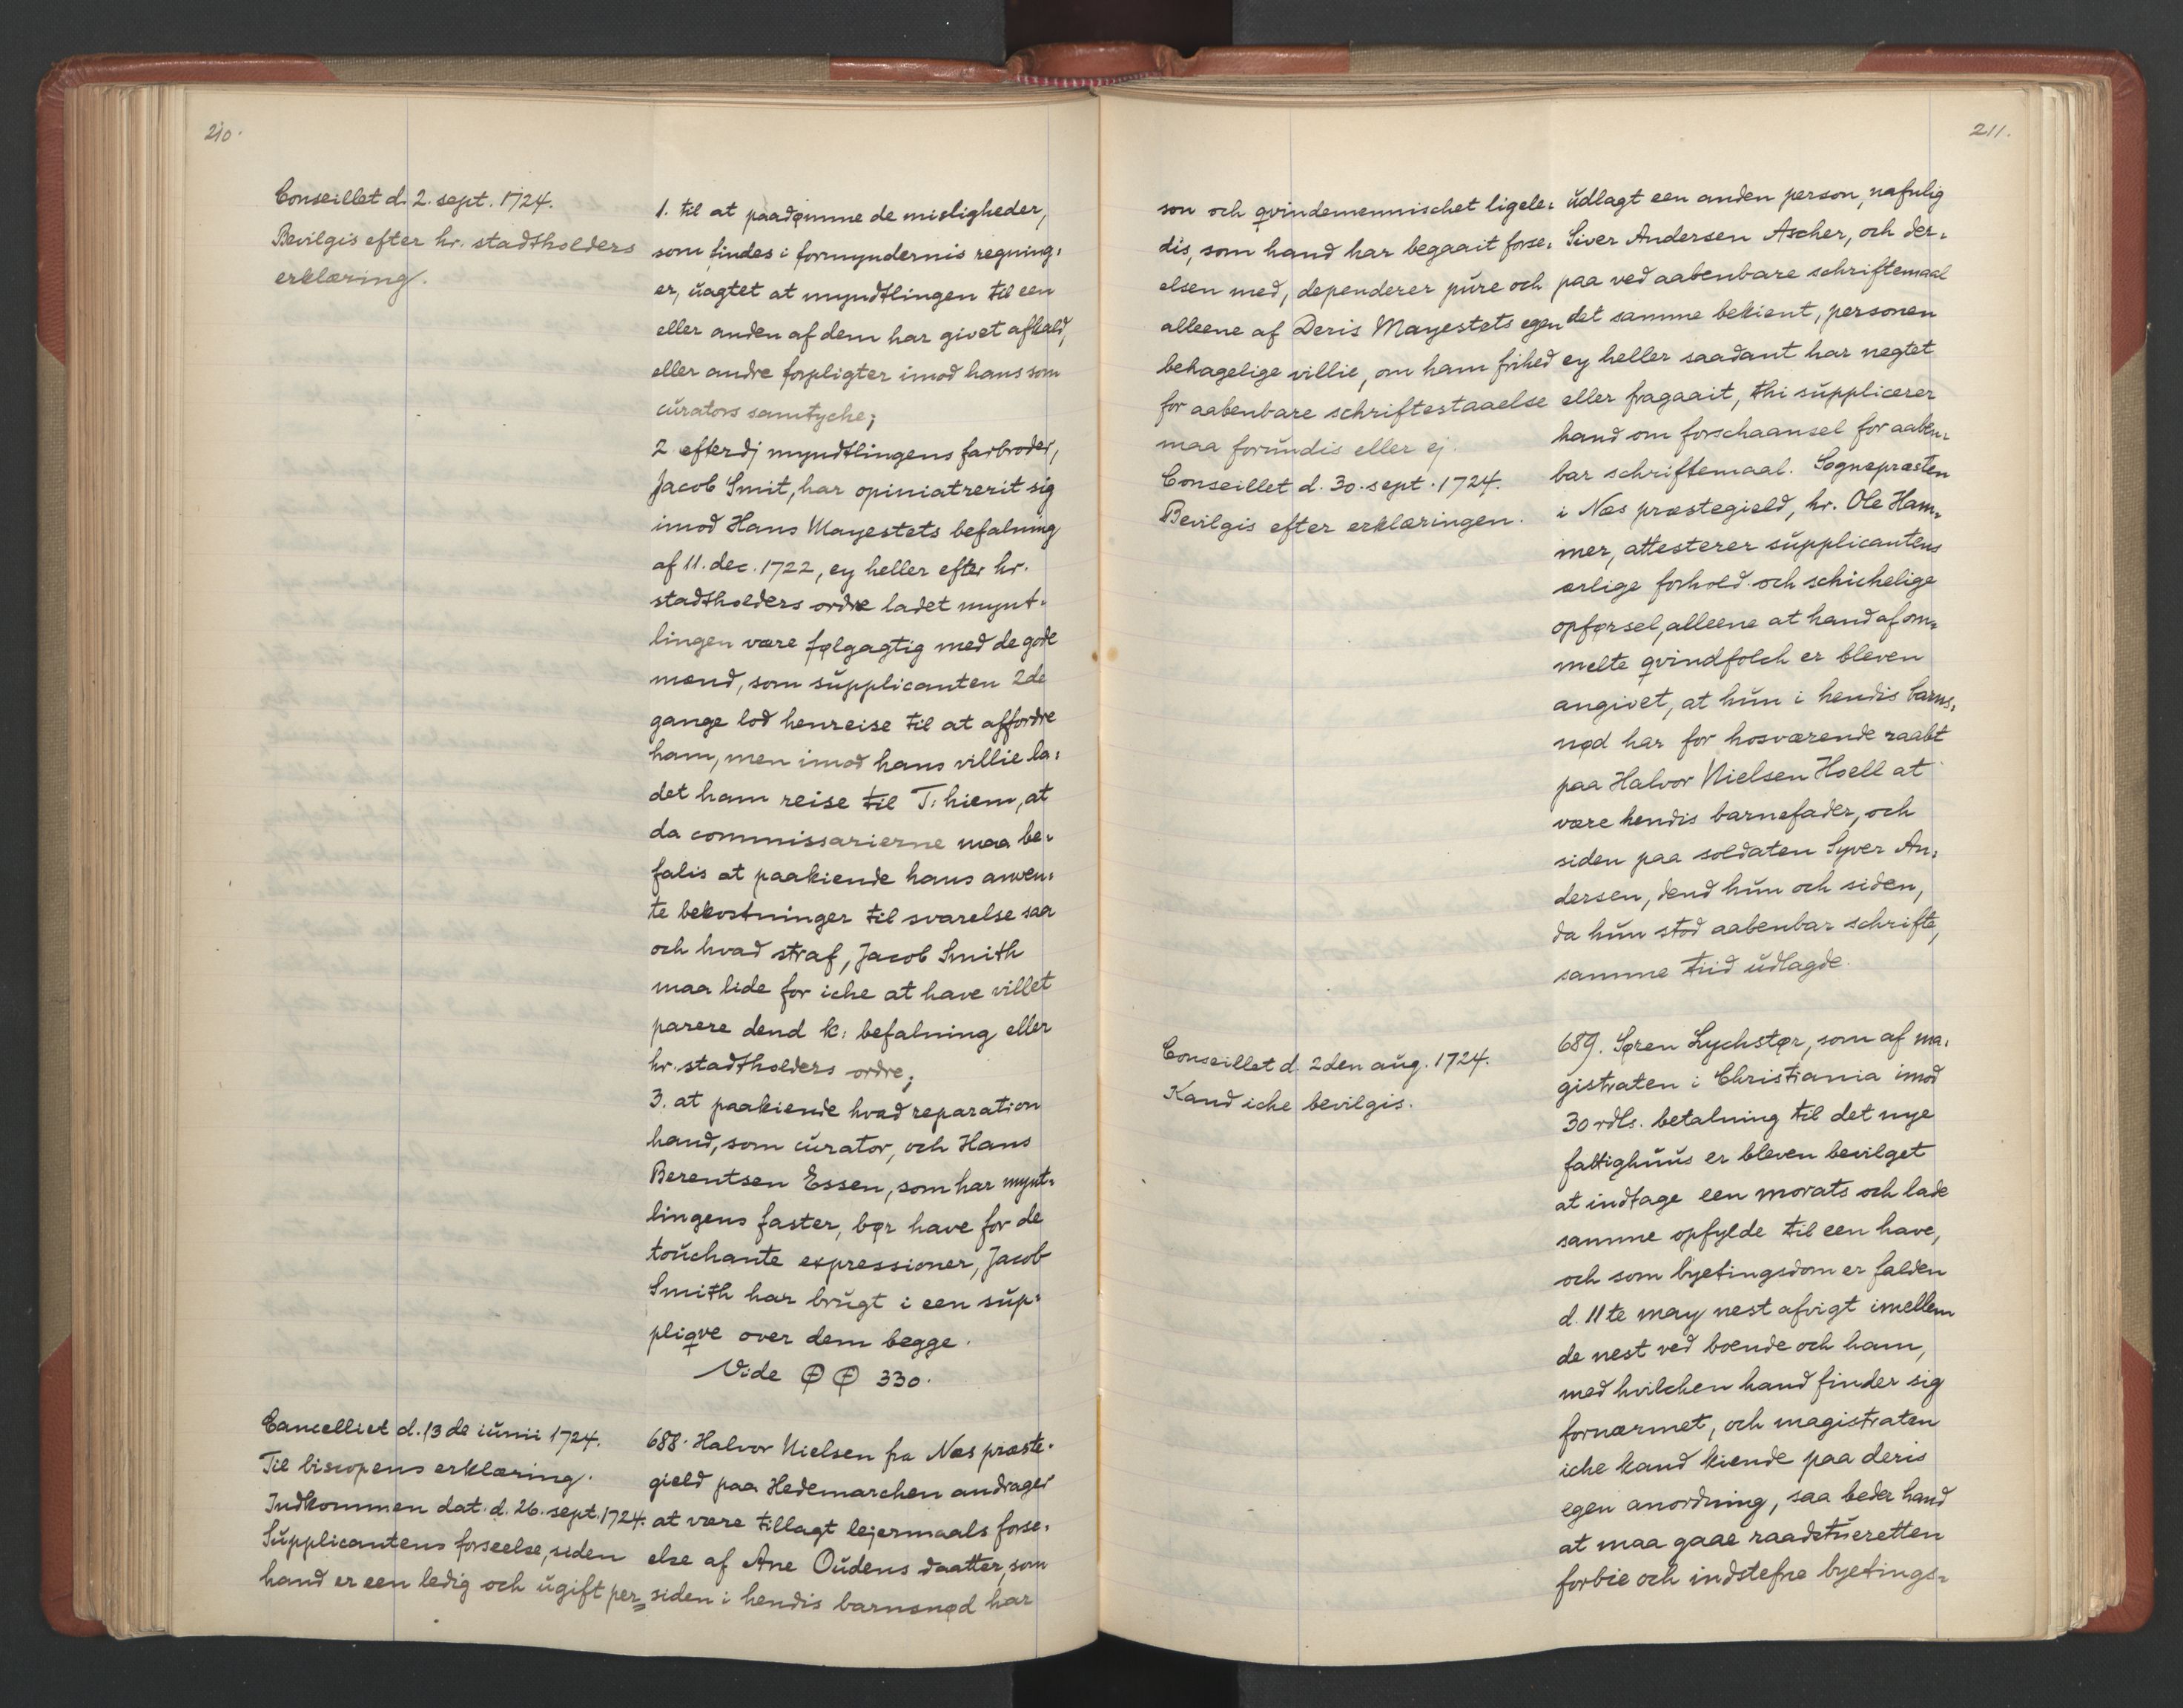 210.
Conseillet d. 2. sept. 1724.
Bevilgis efter hr. stadtholders
erklæring.
1. til at paadømme de misligheder,
som findes i formyndernis regning:
er, uagtet at myndtlingen til een
eller anden af dem har givet afkald,
eller andre forpligter imod hans som
curators samtyche;
2. efterdj myndtlingens farbroder,
Jacob Smit, har opiniatrerit sig
imod Hans Mayestets befalning
af 11. dec. 1722, ey heller efter hr.
stadtholders ordre ladet mynt-
lingen være følgagtig med de gode
mænd, som supplicanten 2de
gange lod henreise til at affordre
ham, men imod hans villie la:
det ham reise til T:hiem, at
da commissarierne maa be:
falis at paakiende hans anven:
te bekostninger til svarelse saa
och hvad straf, Jacob Smith
maa lide for iche at have villet
parere dend k: befalning eller
hr. stadtholders ordre;
3. at paakiende hvad reparation
hand, som curator, och Hans
Berentsen Essen, som har mynt-
lingens faster, bør have for de
touchante expressioner, Jacob
Smith har brugt i een sup:
pliqve over dem begge.
Vide ⌽ ⌽ 330.
Cancelliet d. 13de iunii 1724.
Til biscopens erklæring.
Indkommen dat. d. 26. sept. 1724:
Supplicantens forseelse, siden
hand er een ledig och ugift per=
688. Halvor Nielsen fra Næs præste-
gield paa Hedemarchen andrager
at være tillagt lejermaals forse:
else af Ane Oudens daatter, som
siden i hendis barnsnød har
211.
son och qvindemennischet ligele:
dis, som hand har begaait forse:
elsen med, dependerer pure och
alleene af Deris Mayestets egen
behagelige villie, om ham frihed
for aabenbare schriftestaaelse
maa forundis eller ej.
Conseillet d. 30. sept. 1724.
Bevilgis efter erklæringen.
udlagt een anden person, nafnlig
Siver Andersen Ascher, och der:
paa ved aabenbare schriftemaal
det samme bekient, personen
ey heller saadant har negtet
eller fragaait, thi supplicerer
hand om forschaansel for aaben:
bar schriftemaal. Sognepræsten
i Næs præstegield, hr. Ole Ham:
mer, attesterer supplicantens
ærlige forhold och schichelige
opførsel, alleene at hand af om:
melte qvindfolch er bleven
angivet, at hun i hendis barns:
nød har for hosværende raabt
paa Halvor Nielsen Hoell at
være hendis barnefader, och
siden paa soldaten Syver An:
dersen, dend hun och siden,
da hun stod aabenbar schrifte,
samme tiid udlagde.
Conseillet d. 2den aug. 1724.
Kand iche bevilgis.
689. Søren Lychstør, som af ma:
gistraten i Christiania imod
30 rdls. betalning til det nye
fattighuus er bleven bevilget
at indtage een morats och lade
samme opfylde til een have,
och som byetingsdom er falden
d. 11te may nest afvigt imellem
de nest ved boende och ham,
med hvilchen hand finder sig
fornærmet, och magistraten
iche kand kiende paa deris
egen anordning, saa beder hand
at maa gaae raadstueretten
forbie och indstefne byetings=